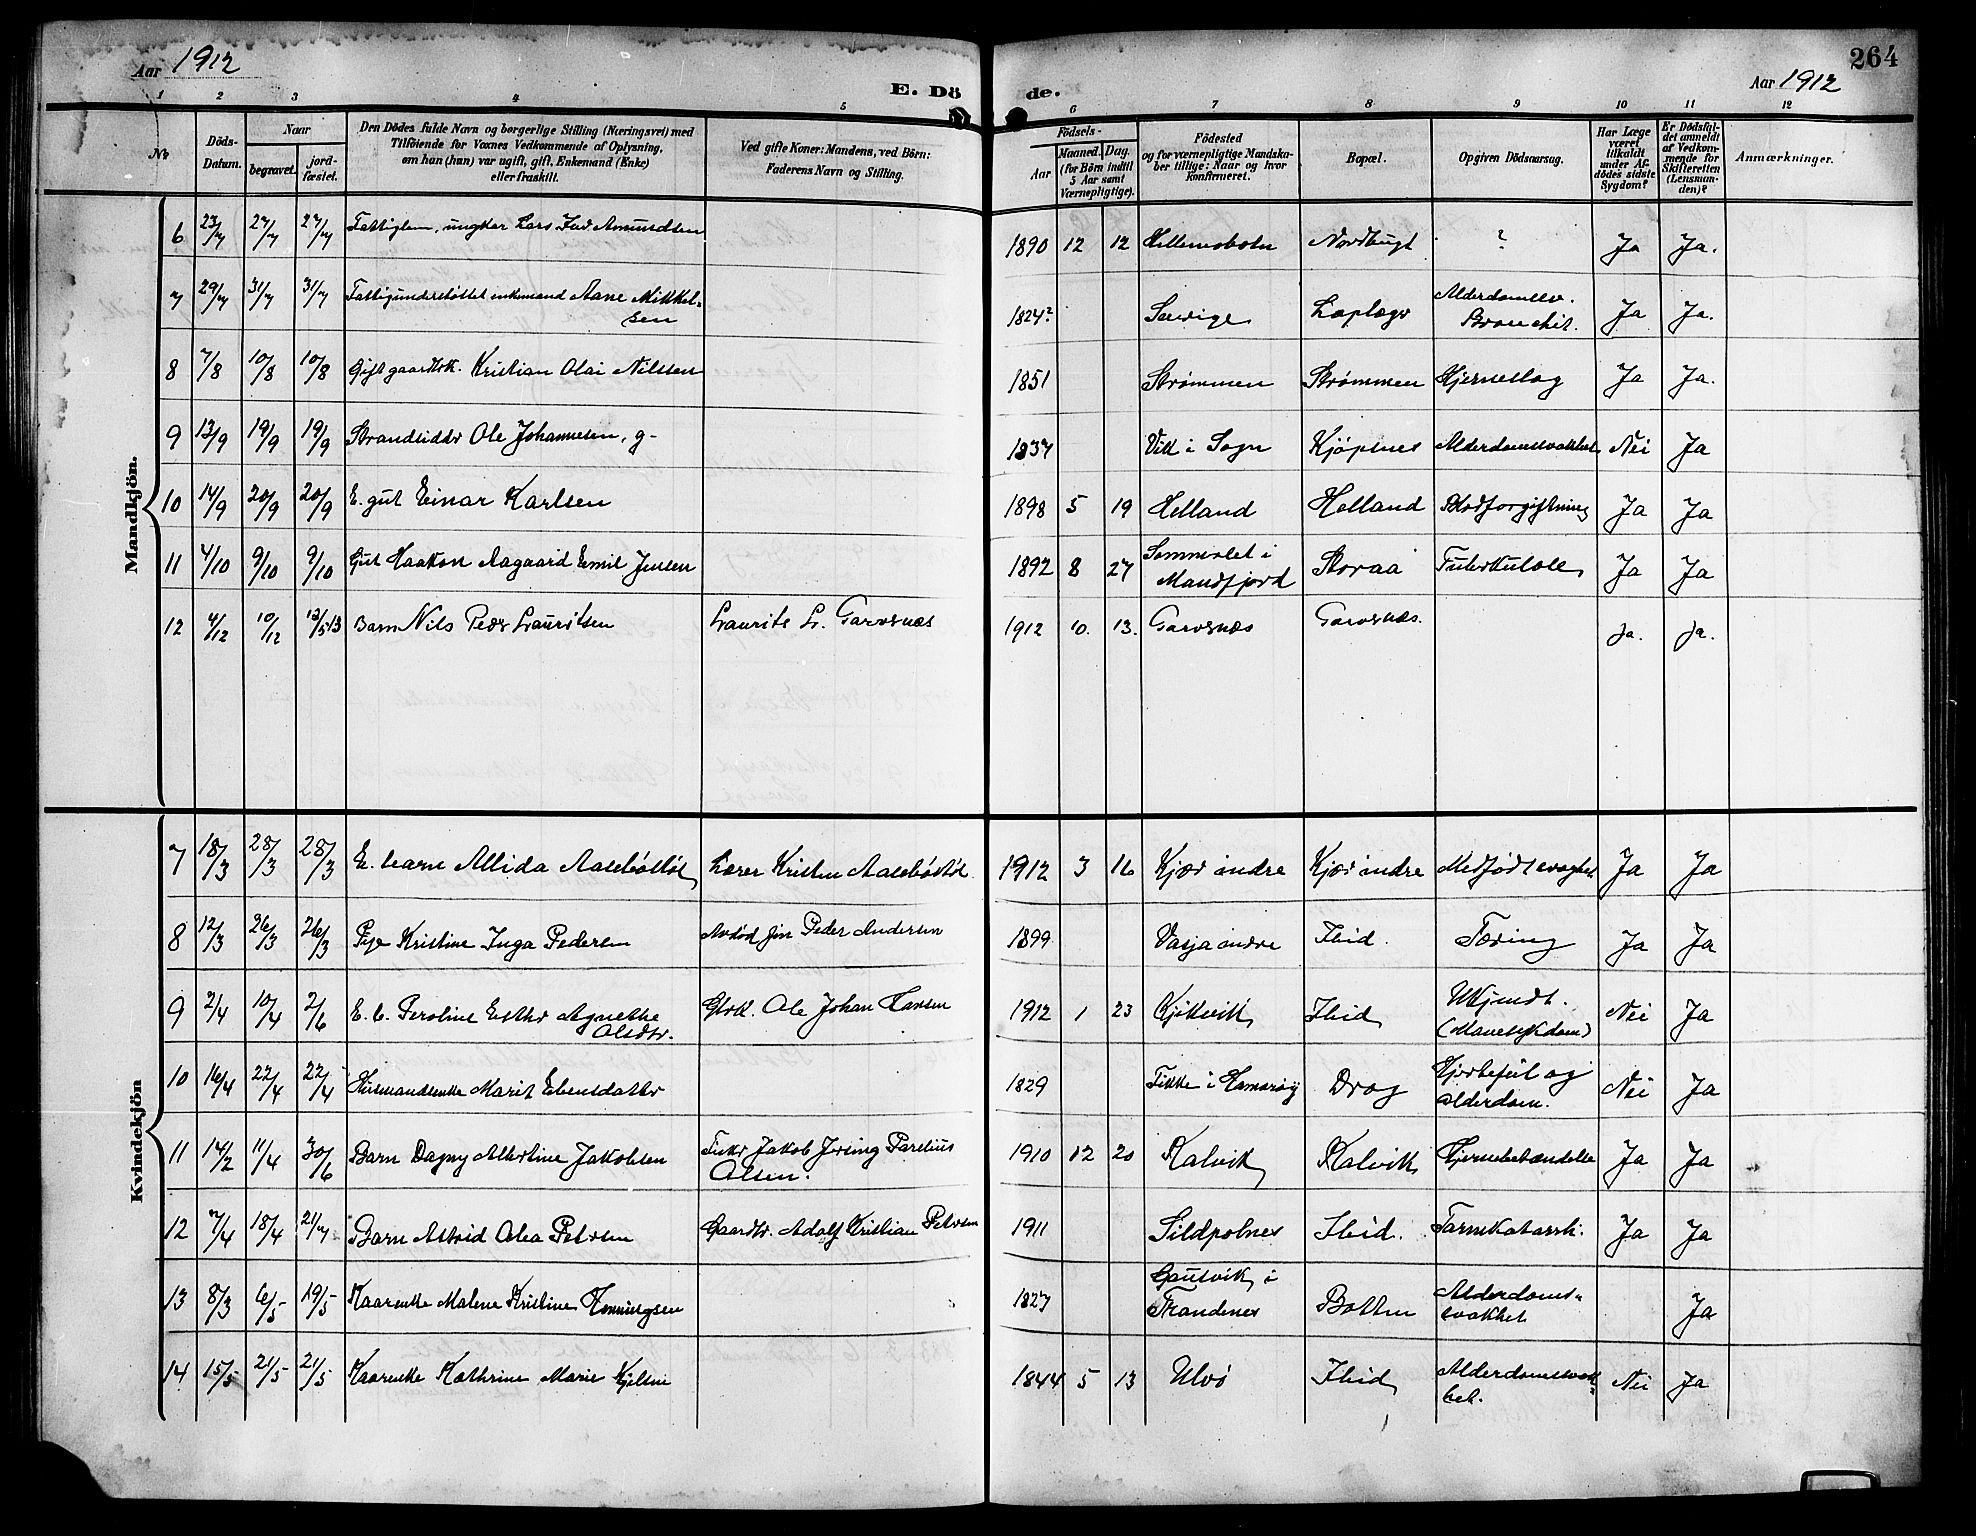 Aar 1912
E. Dö
de.
Aar 1912
264
1 2 3 4 5 6 7 8 9 10 11 12
No
Döds-Datum.
Naar
begravet.
jord-fæstet.
Den Dödes fulde Navn og borgerlige Stilling (Næringsvei) med
Tilföiende for Voxnes Vedkommende af Oplysning,
om han (hun) var ugift, gift, Enkemand (Enke)
eller fraskilt.
Ved gifte Koner: Mandens, ved Börn:
Faderens Navn og Stilling.
Födsels-
Aar
Maaned. Dag.
(for Börn indtil
5 Aar samt
Værnepligtige).
Födested
og for værnepligtige Mandska-
ber tillige: Naar og hvor
konfirmeret.
Bopæl.
Opgiven Dödsaarsag.
Har Læge
været
tilkaldt
under Af-
dödes sidste
Sygdom?
Er Dödsfal-
det anmeldt
af Vedkom-
mende for
Skifteretten
(Lensman-
den)?
Anmærkninger.
Mandkjön.
6 23/7 27/7 27/7 Fattiglem, ungkar Lars Amundsen 1890 12 12 Hellemobotn Nordbugt ? Ja Ja.
7 29/7 31/7 31/7 Fattigunderstøttet enkemand Aane Mikkel-
sen 1824? Sverige Lapläger Alderdomssv.
Bronchit. Ja Ja.
8 7/8 10/8 10/8 Gift gaardbrk. Kristian Olai Nilssen 1851 Strømmen Strømmen Hjerneslag Ja Ja.
9 13/9 19/9 19/9 Strandsidder Ole Johannesen, g- 1837 Vik i Sogn Kjöpsnes Alderdomssvakhet Nei Ja
10 14/9 20/9 20/9 E. gut Einar Karlsen 1898 5 19 Helland Helland Blodforgiftning Ja Ja
11 4/10 9/10 9/10 Gut Haakon Aagaard Emil Jensen 1892 8 27 Sommerset i
Mandfjord Storaa Tuberkulose Ja Ja
12 4/12 10/12 12/5 13 Barn Nils Peder Lauritsen Laurits L. Garvsnæs 1912 10. 13. Garvsnæs Garvsnæs. ja. ja.
Kvindekjön
7 18/3 28/3 28/3 E. barn Allida Aasebøstøl Lærer Kristen Aasebøstøl. 1912 3 16 Kjær indre Kjær indre Medfødt svaghet Ja Ja
8 12/3 26/3 26/3 Pige Kristine Inga Pedersen Avdød Peder Andersen 1899 Vasja indre Ibid. Tæring Ja Ja
9 2/4 10/4 2/6 E. b. Peroline Esther Agnethe
Olsdtr. Gbrk. Ole Johan Hansen 1912 1 23 Kjikvik Ibid Ukjendt.
(Mavesykdom) Nei Ja
10 16/4 22/4 22/4 Husmandsenke Marit Ebensdatter 1829 Fikke i Hamarøy Drag Hjertefeil og
alderdom. Nei Ja
11 14/2 11/4 30/6 Barn Dagny Albertine Jakobsen Fisker Jakob Jøring Parelius
Olsen. 1910 12 20 Kalvik Kalvik Hjernebetændelse Ja Ja
12 7/4 18/4 21/7 Barn Astrid Olea Petersen Gaardbr. Adolf Kristian Petersen 1911 Sildpolnes Ibid. Tarmkatarrh. Ja Ja
13 8/3 6/5 19/5 Kaarenke Malene Kristine Henningsen 1827 Gausvik i
Trandenes Botten Alderdoms-
svakhet Ja
14 15/5 21/5 21/5 Kaarenke Kathrine Marie Kjelsen 1844 5 13 Ulvø Ibid Alderdomssvak-
het. Nei Ja